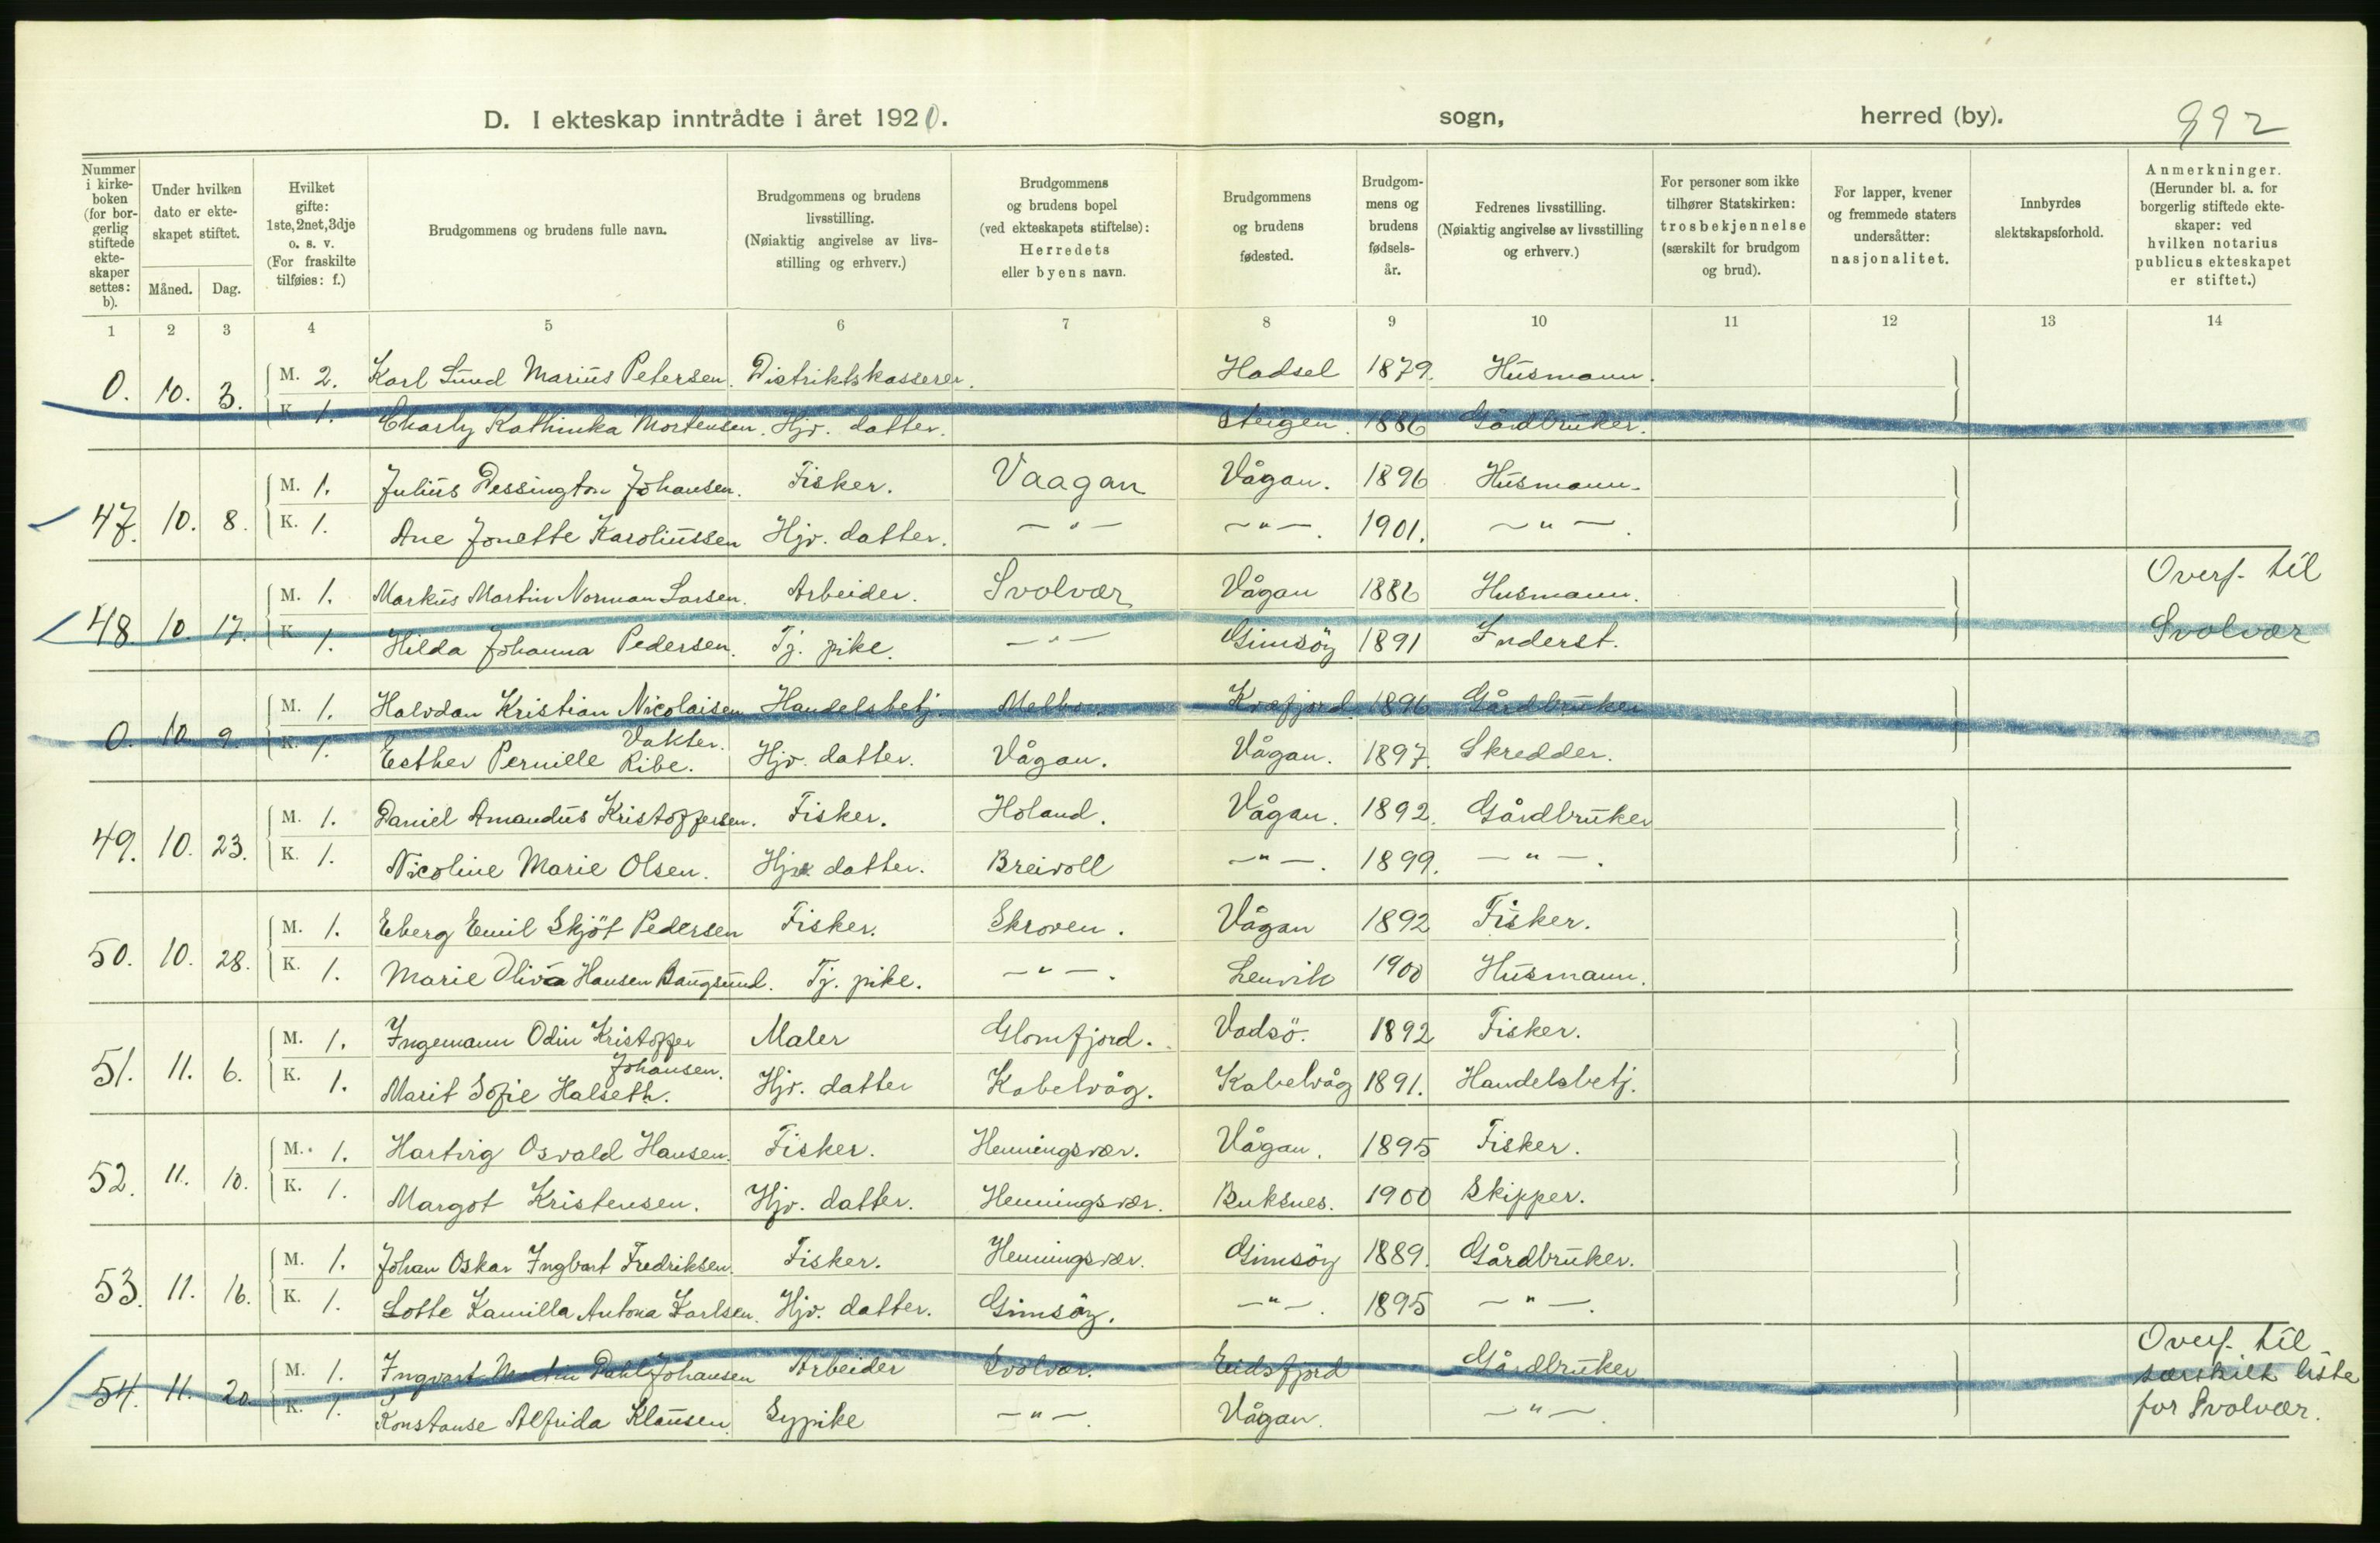 D. I ekteskap inntrådte i året 1920. sogn, herred (by). 992
Nummer i kirke-boken (for bor-gerlig stiftede ekte-skaper settes: b).
Under hvilken dato er ekte-skapet stiftet.
Måned. Dag.
Hvilket gifte: 1ste, 2net, 3dje o. s. v. (For fraskilte tilføies: f.)
Brudgommens og brudens fulle navn.
Brudgommens og brudens livsstilling. (Nøiaktig angivelse av livs-stilling og erhverv.)
Brudgommens og brudens bopel (ved ekteskapets stiftelse): Herredets eller byens navn.
Brudgommens og brudens fødested.
Brudgom-mens og brudens fødsels-år.
Fedrenes livsstilling. (Nøiaktig angivelse av livsstilling og erhverv.)
For personer som ikke tilhører Statskirken: trosbekjennelse (særskilt for brudgom og brud).
For lapper, kvener og fremmede staters undersåtter: nasjonalitet.
Innbyrdes slektskapsforhold.
Anmerkninger. (Herunder bl. a. for borgerlig stiftede ekte-skaper: ved hvilken notarius publicus ekteskapet er stiftet.)
1 2 3 4 5 6 7 8 9 10 11 12 13 14
0. 10. 3. M. 2. Karl Lund Marius Petersen. Distriktskasserer. Hadsel 1879. Husmann.
K. 1. Charly Kathinka Mortensen. Hjv. datter. Steigen. 1886 Gårdbruker.
47. 10. 8. M. 1. Julius Pessington Johansen. Fisker. Vaagan Vågan. 1896 Husmann.
K. 1. Ane Jonette Karoliussen Hjv. datter. —"— —"—. 1901. —"—.
48. 10. 17. M. 1. Markus Martin Norman Larsen. Arbeider. Svolvær Vågan 1886 Husmann. Overf. til
K. 1. Hilda Johanna Pedersen. Tj. pike. —"— Gimsöy 1891 Inderst. Svolvær
0. 10. 9. M. 1. Halvdan Kristian Nicolaisen Handelsbetj. Melbo. Kvæfjord 1896 Gårdbruker
Vakter.
K. 1. Esther Pernille Ribe. Hjv. datter. Vågan. Vågan. 1897. Skredder.
49. 10. 23. M. 1. Daniel Amandus Kristoffersen. Fisker. Holand. Vågan. 1892. Gårdbruker
K. 1. Nicoline Marie Olsen. Hjv. datter. Breivoll —"—. 1899. —"—.
50. 10. 28. M. 1. Eberg Emil Skjöt Pedersen Fisker. Skroven. Vågan 1892 Fisker.
K. 1. Marie Oliva Hansen Bangsund. Tj. pike. —"—. Lenvik 1900 Husmann.
51. 11. 6. M. 1. Ingemann Odin Kristoffer Maler Glomfjord. Vadsö. 1892 Fisker.
Johansen.
K. 1. Marit Sofie Halseth. Hjv. datter Kabelvåg. Kabelvåg 1891. Handelsbetj.
52. 11. 10. M. 1. Hartvig Osvald Hansen. Fisker. Henningsvær. Vågan. 1895 Fisker.
K. 1. Margot Kristensen. Hjv. datter. Henningsvær. Buksnes. 1900 Skipper.
53. 11. 16. M. 1. Johan Oskar Ingbart Fredriksen. Fisker. Henningsvær. Gimsöy 1889. Gårdbruker.
K. 1. Lotte Kamilla Antona Karlsen. Hjv. datter. Gimsöy. —"—. 1895 —"—.
54. 11. 20. M. 1. Ingvart Martin Dahl Johansen Arbeider Svolvær. Eidsfjord Gårdbruker Overf. til
særskilt liste
K. 1. Konstanse Alfrida Klausen. Sypike —"—. Vågan. —"—. for Svolvær.